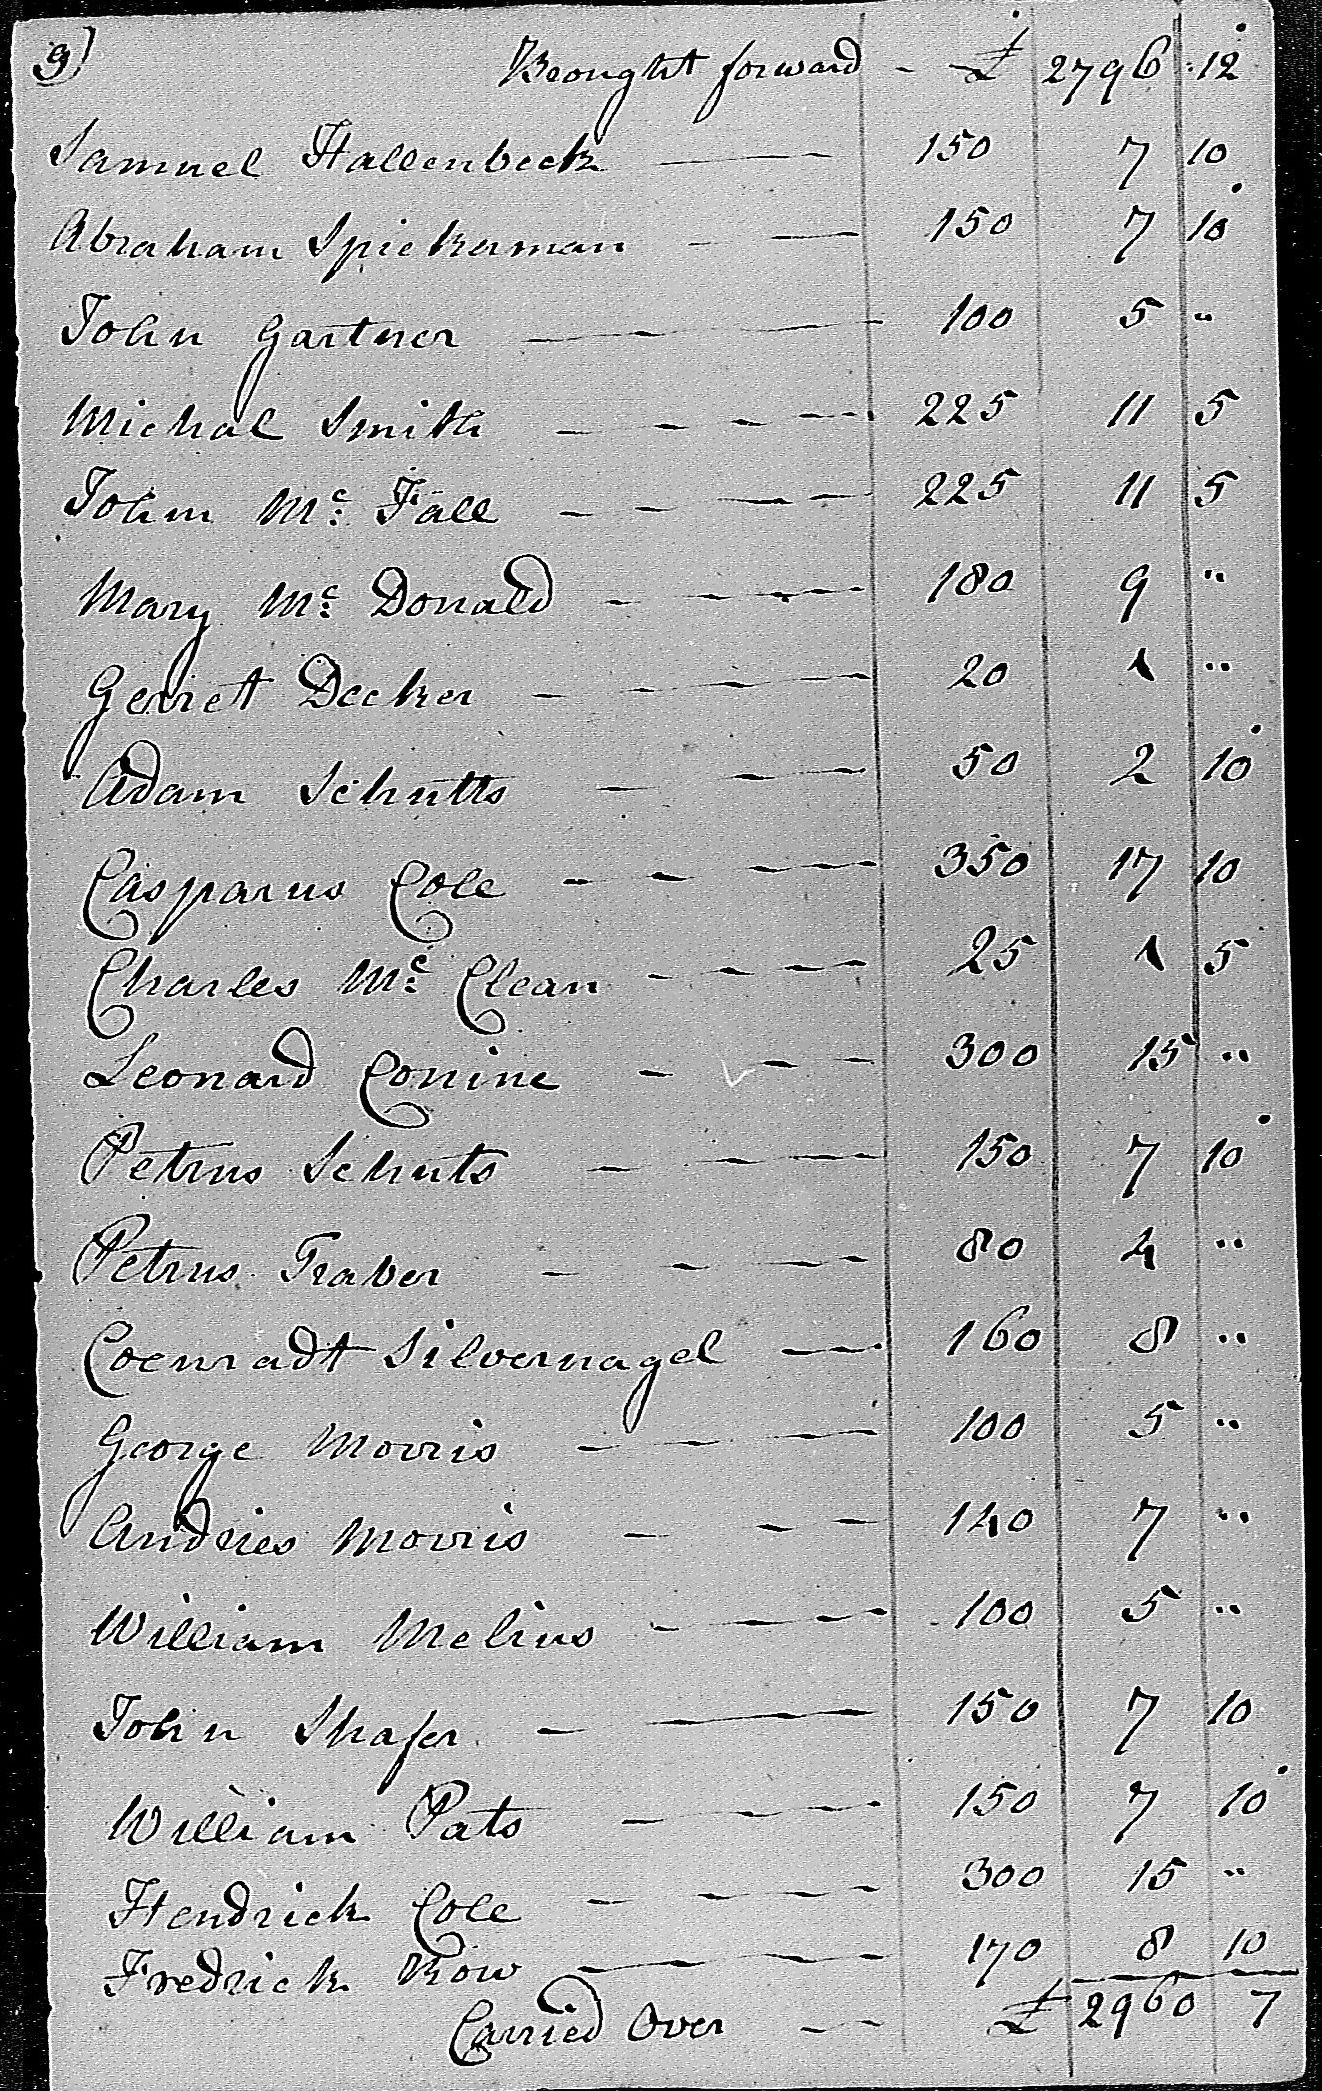 9) Brought forward - - £ 2796 . 12
Samuel Hallenbeck 150 7 10
Abraham Spickerman 150 7 10
John Gartner 100 5 "
Michal Smith 225 11 5
John Mc: Fall 225 11 5
Mary Mc: Donald 180 9 "
Gerrett Decker 20 1 "
Adam Schutts 50 2 10
Casparus Cole 350 17 10
Charles Mc: Clean 25 1 5
Leonard Conine 300 15 "
Petrus Schuts 150 7 10
Petrus Traver 80 4 "
Coenradt Silvernagel 160 8 "
George Morris 100 5 "
Andries Morris 140 7 "
William Melius 100 5 "
John Shafer 150 7 10
William Pats 150 7 10
Hendrick Cole 300 15 "
Fredrick Row 170 8 10
Carried Over - - £ 2960 7